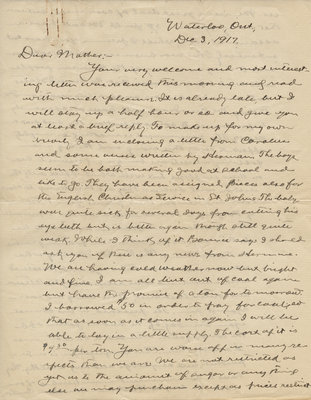 Waterloo, Ont,
Dec 3, 1917.
Dear Mother,-
Your very welcome and most interest-
ing letter was received this morning and read
with much pleasure. It is already late but I
will stay up a half hour or so and give you
at least a brief reply. To make up for my own
I am inclosing a letter from Caroline
and some verses written by Herman. The boys
seem to be both making good at school and
like to go. They have been assigned pieces also for
the English Church at St. Johns. The baby
was quite sick for several days from cutting his
eye teeth but is better again though still quite
weak. While I think of it says I should
ask you if there is any news from Herman.
We are having cold weather now but bright
and fine. I am all out of coal again
but have the promise of a ton for to-morrow.
I borrowed 50 in order to pay for coal, so
that as soon as it comes in again I will be
able to lay in a little supply. The cost of it is
per ton. You are worse off in many re-
spects than we are. We are not restricted as
yet as to the amount of sugar or any thing
else we may purchase except as prices restrict